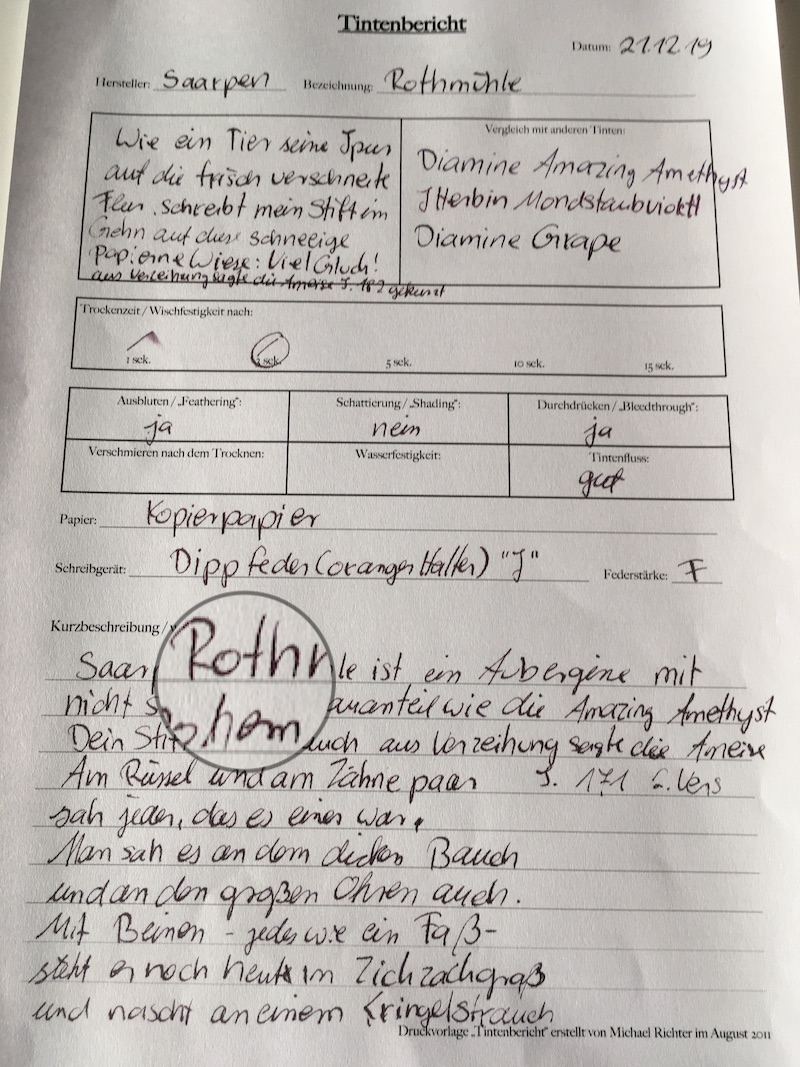 Tintenbericht
Datum: 21.12.19
Hersteller: Saarpen Bezeichnung: Rothmühle
Wie ein Tier seine Spur
auf die frisch verschneite
Flur, schreibt mein Stift im
Gehn auf diese schneeige
Papierne Wiese: Viel Glück!
aus Verzeihung sagte die Ameise S. 182 gekürzt
Vergleich mit anderen Tinten:
Diamine Amazing Amethyst
J Herbin
Diamine Grape
Trockenzeit / Wischfestigkeit nach:
1 sek. sek. 5 sek. 10 sek. 15 sek.
Ausbluten / „Feathering": Schattierung / „Shading": Durchdrücken / „Bleedthrough":
ja nein ja
Verschmieren nach dem Trocknen: Wasserfestigkeit: Tintenfluss:
gut
Papier: Kopierpapier
Schreibgerät: Dippfeder (oranger Halter) "J" Federstärke: F
Kurzbeschreibung /
Saar Rothm le ist ein Aubergine mit
nicht s hem auanteil wie die Amazing Amethyst
Dein Stif auch aus Verzeihung sagte die Ameise
Am Rüssel und am Zähnepaar S. 171 2. Vers
sah jeder, das es einer war.
Man sah es an dem dicken Bauch
und an den großen Ohren auch.
Mit Beinen - jedes wie ein Faß-
steht er noch heute im Zickzackgraß
und nascht an einem Kringelstrauch
Druckvorlage „Tintenbericht" erstellt von Michael Richter im August 2011